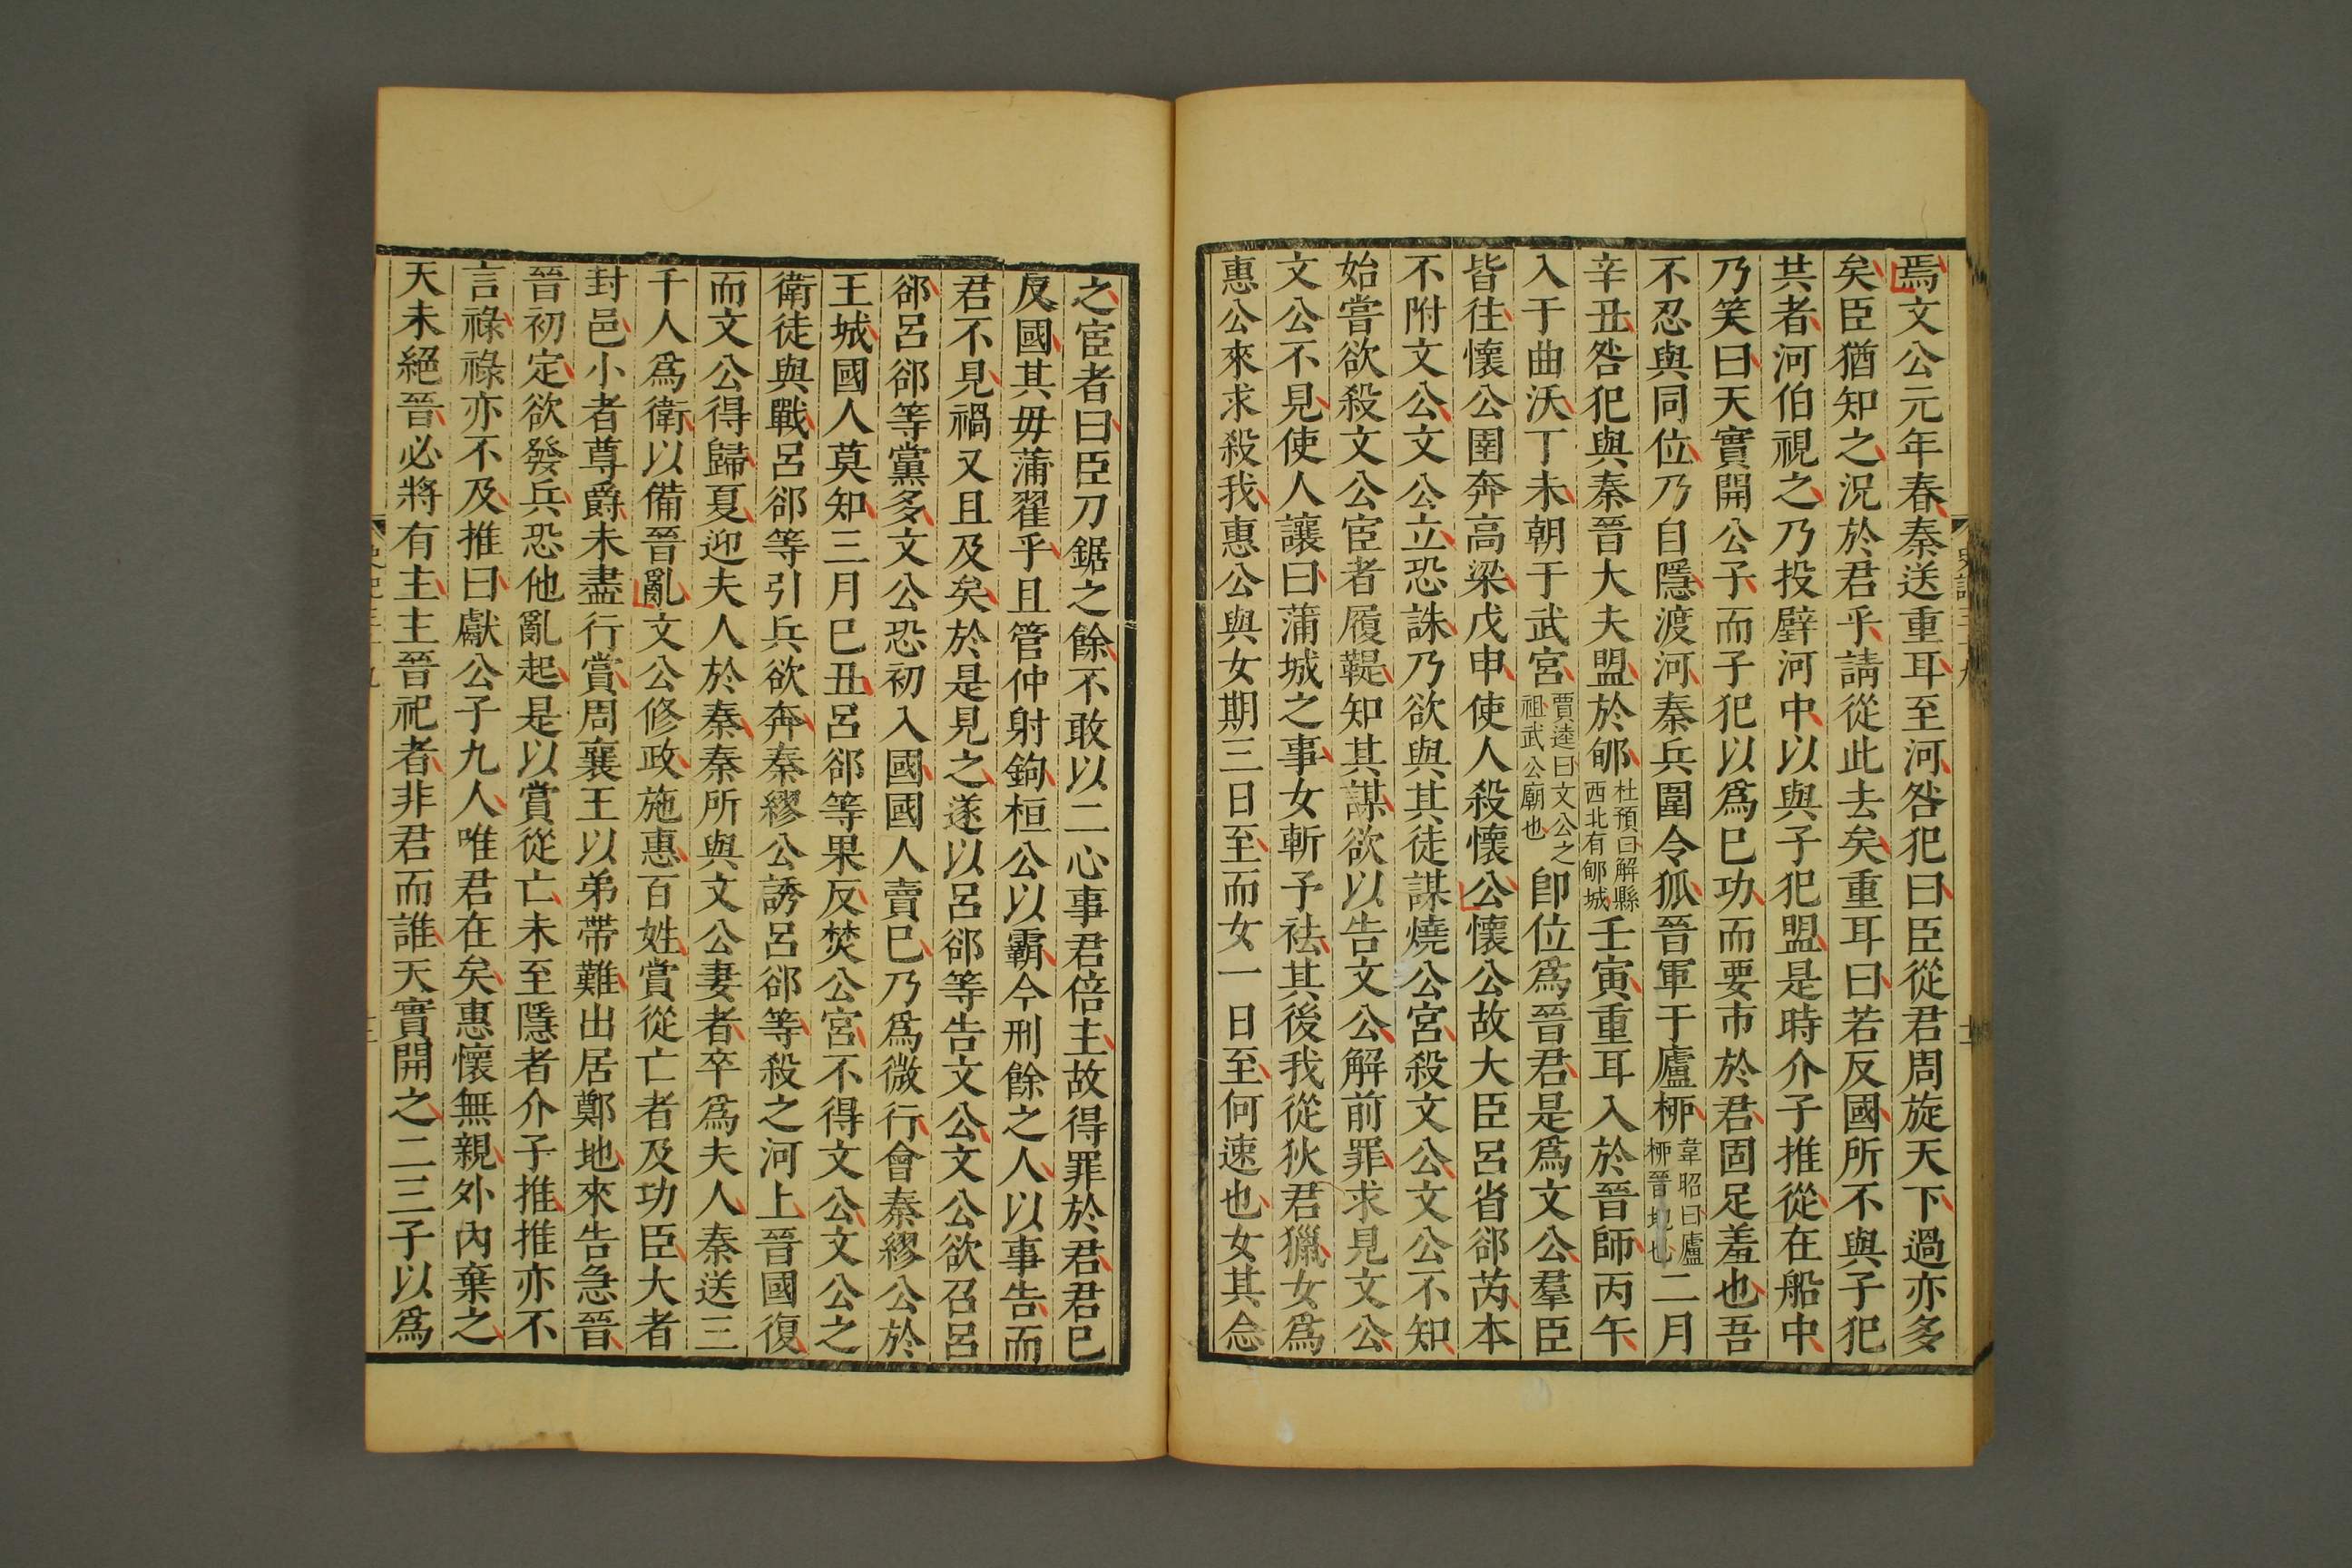 焉文公元年春秦送重耳至河咎犯曰臣從君周旋天下過亦多
矣臣猶知之況於君乎請從此去矣重耳曰若反國所不與子犯
共者河伯視之乃投璧河中以與子犯盟是時介子推從在船中
乃笑曰天實開公子而子犯以爲已功而要市於君固足羞也吾
不忍與同位乃自隱渡河秦兵圍令狐晉軍于廬桺韋昭曰廬桺晉地也二月
辛丑咎犯與秦晉大夫盟於郇杜預曰解縣西北有郇城壬寅重耳入於晉師丙午
入于曲沃丁未朝于武宮賈逵曰文公之祖武公廟也卽位爲晉君是爲文公羣臣
皆往懷公圉奔高梁戊申使人殺懷公懷公故大臣呂省郤芮本
不附文公文公立恐誅乃欲與其徒謀燒公宮殺文公文公不知
始嘗欲殺文公宦者履鞮知其謀欲以告文公解前罪求見文公
文公不見使人讓曰蒲城之事女斬予袪其後我從狄君獵女爲
惠公來求殺我惠公與女期三日至而女一日至何速也女其念
之宦者曰臣刀鋸之餘不敢以二心事君倍主故得罪於君君已
反國其毋蒲翟乎且管仲射鉤桓公以霸今刑餘之人以事告而
君不見禍又且及矣於是見之遂以呂郤等告文公文公欲召呂
郤呂郤等黨多文公恐初入國國人賣已乃爲微行會秦繆公於
王城國人莫知三月已丑呂郤等果反焚公宮不得文公文公之
衛徒與戰呂郤等引兵欲奔秦繆公誘呂郤等殺之河上晉國復
而文公得歸夏迎夫人於秦秦所與文公妻者卒爲夫人秦送三
千人爲衛以備晉亂文公修政施惠百姓賞從亡者及功臣大者
封邑小者尊爵未盡行賞周襄王以弟帶難出居鄭地來告急晉
晉初定欲發兵恐他亂起是以賞從亡未至隱者介子推推亦不
言祿祿亦不及推曰獻公子九人唯君在矣惠懷無親外內棄之
天未絕晉必將有主主晉祀者非君而誰天實開之二三子以爲